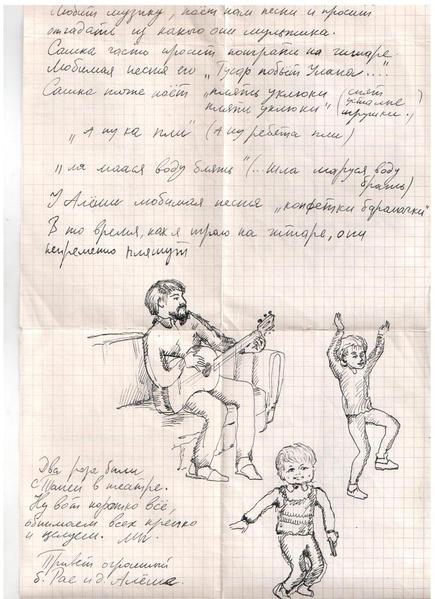 Любит музыку, поёт нам песни и просит
отгадать из какого они мультика.
Сашка часто просит поиграть на гитаре.
Любимая песня его „Гусар побыт Улана...."
Сашка тоже поёт „пляти уклюки (спят
пляти уклюки" усталые
игрушки.)
„А ну ка пли" (А ну ребята пли)
„ля маася воду блять" (...шла маруся воду
брать)
У Алёши любимая песня „конфетки бараночки"
В то время, как я играю на гитаре, они
непременно пляшут
Два раза были
с Таней в театре.
Ну вот коротко всё,
обнимаем всех крепко
и целуем.
Привет огромный
б. Рае и д. Алёше.